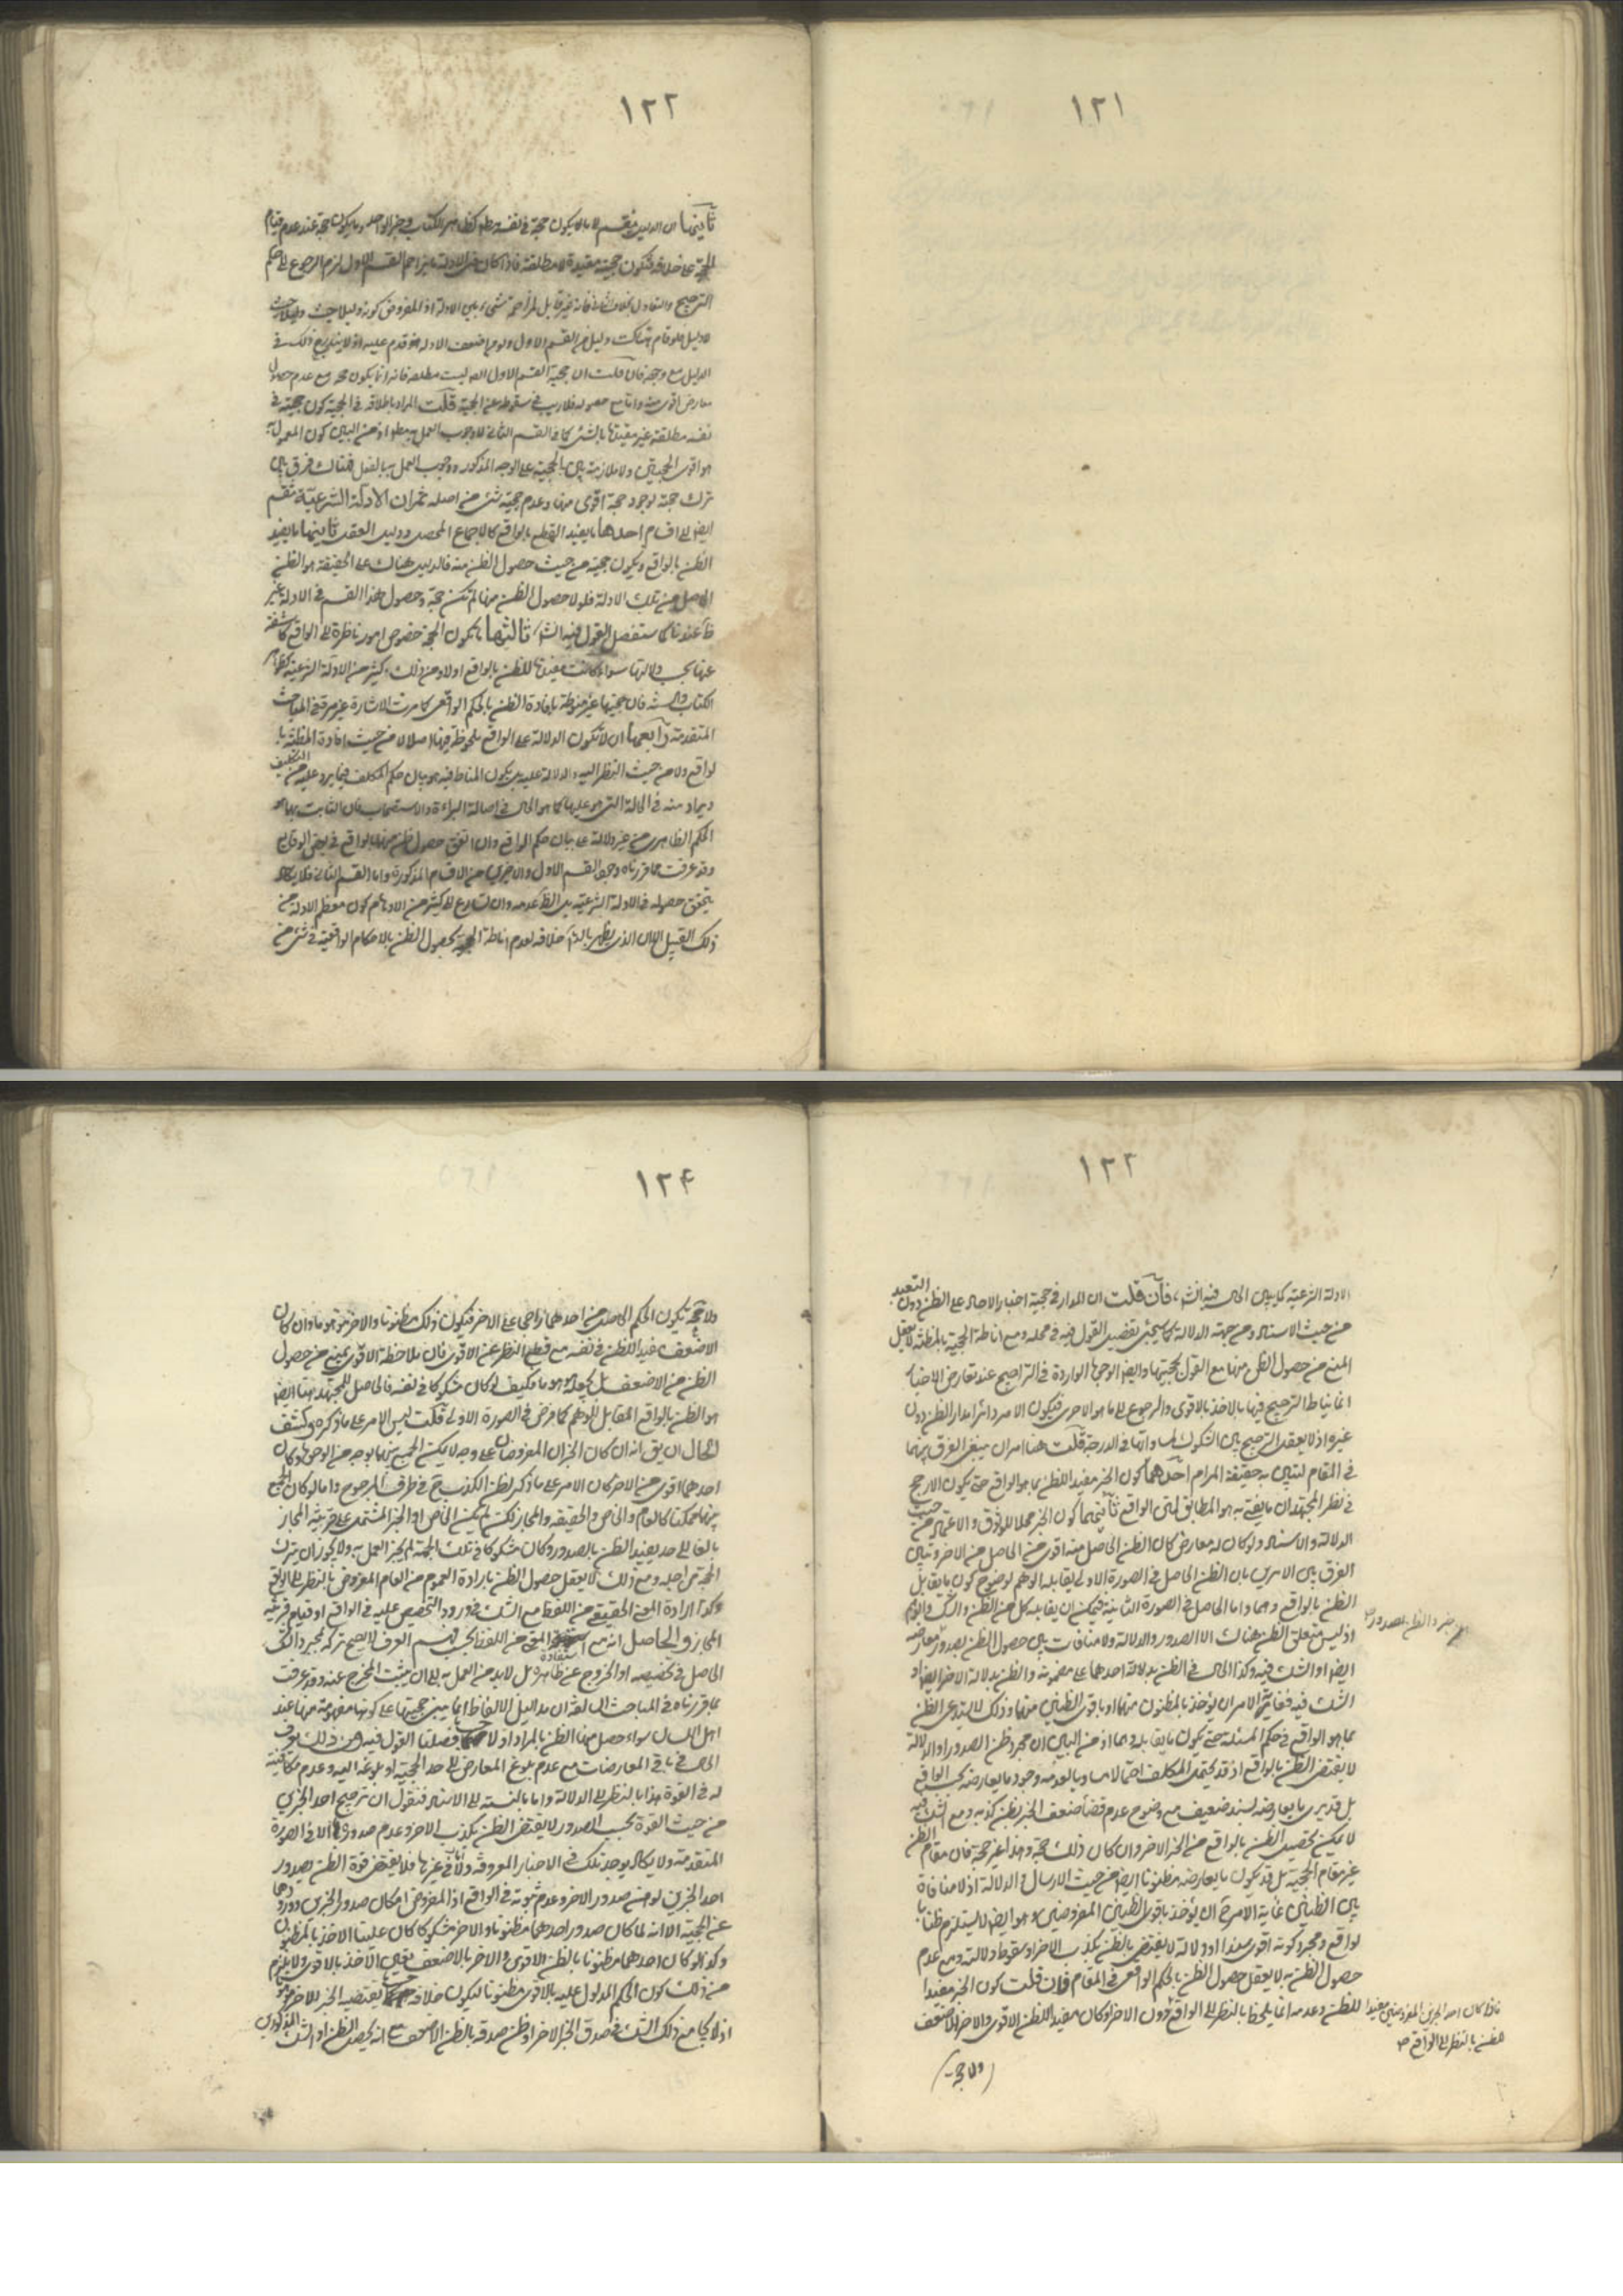 ١٢١
١٢٢
ثانيها ان الدليل ينقسم الى ما يكون حجة في نفسه مطلقا كظاهر الكتاب وخبر الواحد وما يكون حجة عند عدم قيام
الحجة على خلافه فتكون حجيته مقيدة لا مطلقة فاذا كان من الادلة ما يزاحم القسم الاول لزم الرجوع الى حكم
الترجيح والتعادل بخلاف الثاني فانه غير قابل لمزاحمة شيء من الادلة اذ المفروض كونه دليلا حيث
لا دليل فلو قام هناك دليل من القسم الاول ولو من اضعف الادلة قدم عليه
الدليل مع وجهه فان قلت ان حجية القسم الاول ليست مطلقة فانه انما يكون حجة مع عدم حصول
معارض اقوى منه واما مع حصوله فلا ريب في سقوطه عن الحجية قلت المراد باطلاقه في الحجية كون حجيته في
نفسه مطلقة غير مقيدة بالشيء كما في القسم الثاني لا وجوب العمل به مطلقا اذ من البين كون المعمول به
هو اقوى الحجتين ولا ملازمة بين الحجية على الوجه المذكور ووجوب العمل به بالفعل فهناك فرق بين
ترك حجة لوجود حجة اقوى منها وعدم حجية شيء من اصله ثم ان الادلة الشرعية تنقسم
ايضا الى اقسام احدها ما يفيد القطع بالواقع كالاجماع المحصل ودليل العقل ثانيها ما يفيد
الظن بالواقع ويكون حجيته من حيث حصول الظن منه فالدليل هناك على الحقيقة هو الظن
الحاصل من تلك الادلة فلولا حصول الظن منها لم تكن حجة وحصول هذا القسم في الادلة غير
ظ عندنا كما ستفصل القول فيه انش‍ ثالثها ما يكون الحجة خصوص امور ناظرة الى الواقع كاشفة
عنها بحسب دلالتها سواء كانت مفيدة للظن بالواقع او لا ومن ذلك كثير من الادلة الشرعية كظواهر
الكتاب والسنة فان حجيتها غير منوطة بافادة الظن بالحكم الواقعي كما مرت الاشارة غير مرة في المباحث
المتقدمة رابعها ان لا تكون الدلالة على الواقع ملحوظة فيها اصلا لا من حيث افادة المظنة با
لواقع ولا من حيث النظر اليه والدلالة عليه بل يكون المناط فيه هو بيان حكم المكلف فيما يرد عليه من التكليف
ويراد منه في الحالة التي هو عليها كما هو الحال في اصالة البراءة والاستصحاب فان الثابت بهما هو
الحكم الظاهري من غير دلالة على بيان حكم الواقع وان اتفق حصول ظن منهما بالواقع في بعض الوقايع
وقد عرفت مما قررناه وجود القسم الاول والاخيرين من الاقسام المذكورة واما القسم الثاني فلا يكاد
يتحقق حصوله في الادلة الشرعية بل الظ عدمه وان تسارع الى كثير من الاوهام كون معظم الادلة من
ذلك القبيل الا ان الذي يظهر بالت‍ خلافه لعدم اناطة الحجية بحصول الظن بالاحكام الواقعية في شيء من
١٢٣
الادلة الشرعية كما يبين الحال فيه انش‍ فان قلت ان المدار في حجية اخبار الاحاد على الظن دون التعبد
من حيث الاسناد ومن جهة الدلالة كما سيجيء تفصيل القول فيه في محله ومع اناطة الحجية بالمظنة لا يعقل
المنع من حصول الظن منها مع القول بحجيتها وايضا الوجوه الواردة في التراجيح عند تعارض الاخبار
انما يناط الترجيح فيها بالاخذ بالاقوى والرجوع الى ما هو الاحرى فيكون الامر دائرا مدار الظن دون
غيره اذ لا يعقل الترجيح بين الشكوك لمساواتها في الدرجة قلت هنا امران ينبغي الفرق بينهما
في المقام ليتبين به حقيقة المرام احدهما كون الخبر مفيدا للظن بما هو الواقع حتى يكون الارجح
في نظر المجتهد ان ما يفتي به هو المطابق لمتن الواقع ثانيهما كون الخبر محلا للوثوق والاعتماد من حيث
الدلالة والاسناد ولو كان له معارض كان الظن الحاصل منه اقوى من الحاصل من الاخر وتبين
الفرق بين الامرين بان الظن الحاصل في الصورة الاولى يقابله الوهم لوضوح كون ما يقابل
الظن بالواقع وهما واما الحاصل في الصورة الثانية فيمكن ان يقابله كل من الظن والشك والوهم
اذ ليس متعلق الظن هناك الا الصدور والدلالة ولا منافات بين حصول الظن بصدور معارضه
ايضا او الشك فيه وكذا الحال في الظن بدلالة احدهما على مضمونه والظن بدلالة الاخر ايضا او
الشك فيه فغاية الامر ان يؤخذ بالمظنون منهما او باقوى الظنين منهما وذلك لا يستدعي الظن
بما هو الواقع في حكم المسئلة حتى يكون ما يقابله وهما اذ من البين ان مجرد ظن الصدور او الدلالة
لا يقتضي الظن بالواقع اذ قد يحتمل المكلف احتمالا مساويا لعدمه وجود ما يعارضه بحسب الواقع
بل قد يرى ما يعارضه بسند ضعيف مع وضوح عدم قضاء ضعف الخبر بظن كذبه ومع الشك فيه
لا يمكن تحصيل الظن بالواقع من الخبر الاخر وان كان ذلك حجة وهذا غير حجة فان مقام الظن
غير مقام الحجية بل قد يكون ما يعارضه مظنونا ايضا من حيث الارسال والدلالة اذ لا منافاة
بين الظنين غاية الامر ح ان يؤخذ باقوى الظنين المفروضين وهو ايضا لا يستلزم ظنا با
لواقع ومجرد كونه اقوى سندا او دلالة لا يقتضي بالظن بكذب الاخر او سقوط دلالته ومع عدم
حصول الظن به لا يعقل حصول الظن بالحكم الواقعي في المقام فان قلت كون الخبر مفيدا
للظن وعدمه انما يلحظ بالنظر الى الواقع دون الاخر او كان مفيدا للظن الاقوى والاخر للاضعف
فاذا كان احد الخبرين المفروضين مفيدا
للظن بالنظر الى الواقع صح
١٢۴
ولا ح يكون الحكم الحاصل من احدهما راجحا على الاخر فيكون ذلك مظنونا والاخر موهوما وان كان
الاضعف مفيدا للظن في نفسه مع قطع النظر عن الاقوى فان ملاحظة الاقوى يمنع من حصول
الظن من الاضعف بل يجعله موهوما فكيف لو كان مشكوكا في نفسه فالحاصل للمجتهد هنا ايضا
هو الظن بالواقع المقابل للوهم كما فرض في الصورة الاولى قلت ليس الامر على ما ذكره وكشف
الحال ان يق انه ان كان الخبران المفروضان على وجه لا يمكن الجمع بينهما بوجه من الوجوه وكان
احدهما اقوى من الاخر كان الامر على ما ذكر لظن الكذب ح في طرف المرجوح واما لو كان الجمع
بينهما ممكنا كالعام والخاص والحقيقة والمجاز لكن لم يكن الخاص او الخبر المشتمل على قرينة المجاز
بالغا الى حد يفيد الظن بالصدور وكان مشكوكا في تلك الجهة لم يجز العمل به ولا يجوز ان يترك
الحجة من اجله ومع ذلك لا يعقل حصول الظن بارادة العموم من العام المفروض بالنظر الى الواقع
وكذا ارادة المعنى الحقيقي من اللفظ مع الشك في ورود التخصيص عليه في الواقع او قيام قرينة
المجاز والحاصل انه مع استفادة المعنى من اللفظ بحسب فهم العرف لا يصح تركه لمجرد الشك
الحاصل في تخصيصه او الخروج عن ظاهره بل لا بد من العمل به الى ان يثبت المخرج عنه وقد عرفت
مما قررناه في المباحث السالفة ان مداليل الالفاظ انما يبنى حجيتها على كونها مفهومة منها عند
اهل اللسان سواء حصل منها الظن بالمراد او لا حسبما فصلنا القول فيه ومن ذلك يعرف
الحال في باقي المعارضات مع عدم بلوغ المعارض الى حد الحجية او بلوغه اليه وعدم مكافئته
له في القوة هذا بالنظر الى الدلالة واما بالنسبة الى الاسناد فنقول ان ترجيح احد الخبرين
من حيث القوة بحسب الصدور لا يقتضي الظن بكذب الاخر وعدم صدوره الا في الصورة
المتقدمة ولا يكاد يوجد تلك في الاخبار المعروفة واما في غيرها فلا يقتضي قوة الظن بصدور
احد الخبرين لوهن صدور الاخر وعدم ثبوته في الواقع اذ المفروض امكان صدور الخبرين وورودهما
عن الحجية الا انه لما كان صدور احدهما مظنونا والاخر مشكوكا كان علينا الاخذ بالمظنون
وكذا لو كان احدهما مظنونا بالظن الاقوى والاخر بالاضعف يتعين الاخذ بالاقوى ولا يلزم
من ذلك كون الحكم المدلول عليه بالاقوى مظنونا ليكون خلافه مما يقتضيه الخبر الاخر موهوما
اذ لا يجامع ذلك الشك في صدق الخبر الاخر او ظن صدقه بالظن الاضعف مع انه يحصل الظن او الشك المذكورين